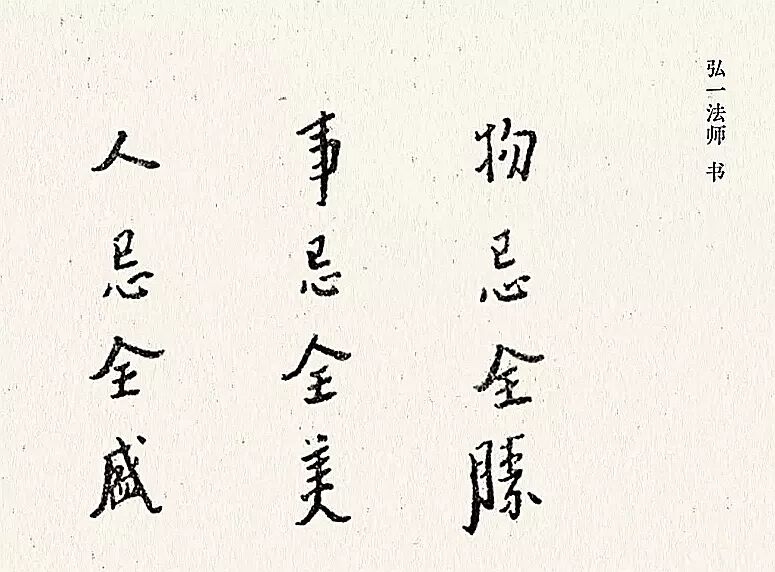 弘一法师 书
物忌全勝
事忌全美
人忌全盛